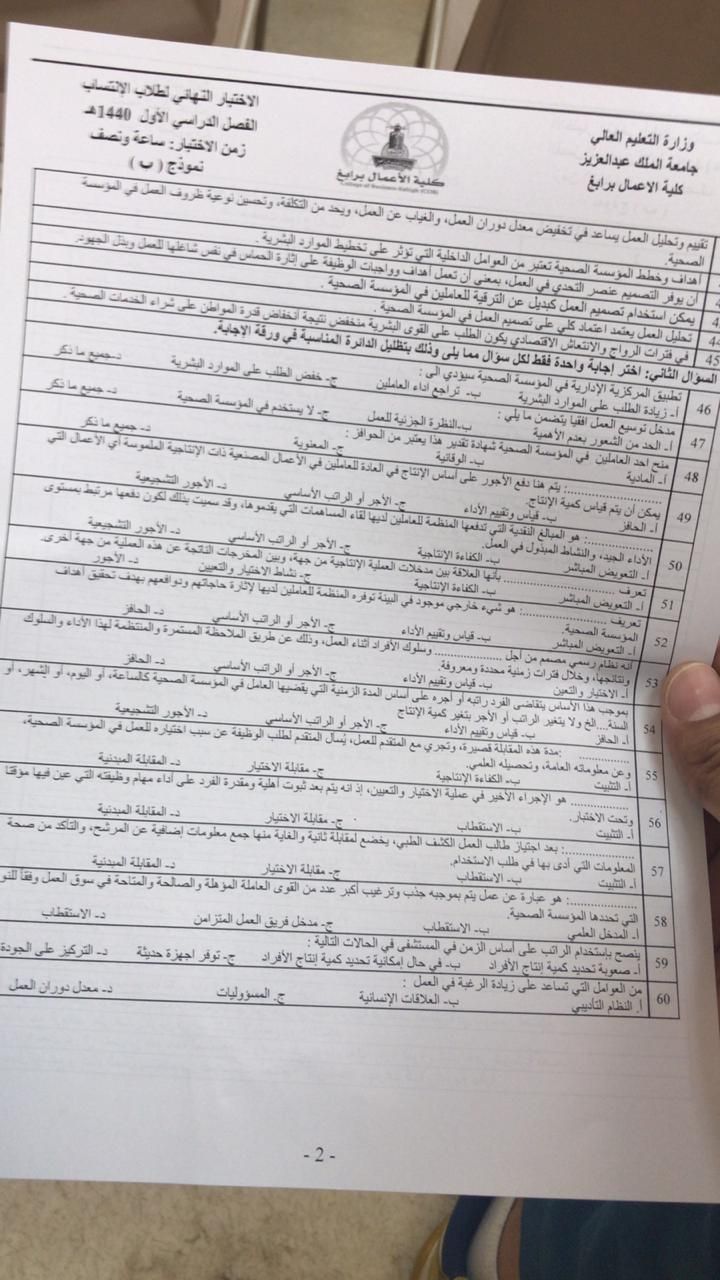 وزارة التعليم العالي
جامعة الملك عبدالعزيز
كلية الاعمال برابغ
كلية الأعمال برابغ
College of Business-Rabigh (COB)
الاختبار النهائي لطلاب الإنتساب
الفصل الدراسي الأول 1440هـ
زمن الاختبار: ساعة ونصف
نموذج (ب)
تقييم وتحليل العمل يساعد في تخفيض معدل دوران العمل، والغياب عن العمل، ويحد من التكلفة، وتحسين نوعية ظروف العمل في المؤسسة
الصحية.
أهداف وخطط المؤسسة الصحية تعتبر من العوامل الداخلية التي تؤثر على تخطيط الموارد البشرية .
أن يوفر التصميم عنصر التحدي في العمل، بمعنى أن تعمل أهداف وواجبات الوظيفة على إثارة الحماس في نفس شاغلها للعمل وبذل الجهود.
يمكن استخدام تصميم العمل كبديل عن الترقية للعاملين في المؤسسة الصحية .
44 تحليل العمل يعتمد اعتماد كلي على تصميم العمل في المؤسسة الصحية .
45 في فترات الرواج والانتعاش الاقتصادي يكون الطلب على القوى البشرية منخفض نتيجة انخفاض قدرة المواطن على شراء الخدمات الصحية .
السؤال الثاني: اختر إجابة واحدة فقط لكل سؤال مما يلي وذلك بتظليل الدائرة المناسبة في ورقة الإجابة.
46 تطبيق المركزية الإدارية في المؤسسة الصحية سيؤدي الى :
أ- زيادة الطلب على الموارد البشرية ب- تراجع اداء العاملين ج- خفض الطلب على الموارد البشرية د-جميع ما ذكر
47 مدخل توسيع العمل افقيا يتضمن ما يلي :
أ- الحد من الشعور بعدم الأهمية ب-النظرة الجزئية للعمل ج- لا يستخدم في المؤسسة الصحية د- جميع ما ذكر
48 منح احد العاملين في المؤسسة الصحية شهادة تقدير هذا يعتبر من الحوافز :
أ- المادية ب- الوقائية ج- المعنوية د- جميع ما ذكر
49 ................: يتم هنا دفع الأجور على أساس الإنتاج في العادة للعاملين في الأعمال المصنعية ذات الإنتاجية الملموسة أي الأعمال التي
يمكن أن يتم قياس كمية الإنتاج.
أ- الحافز ب- قياس وتقييم الأداء ج- الأجر أو الراتب الأساسي د- الأجور التشجيعية
50 ................: هو المبالغ النقدية التي تدفعها المنظمة للعاملين لديها لقاء المساهمات التي يقدموها، وقد سميت بذلك لكون دفعها مرتبط بمستوى
الأداء الجيد، والنشاط المبذول في العمل.
أ- التعويض المباشر ب- الكفاءة الإنتاجية ج- الأجر أو الراتب الأساسي د- الأجور التشجيعية
51 تعرف ................ بأنها العلاقة بين مدخلات العملية الإنتاجية من جهة، وبين المخرجات الناتجة عن هذه العملية من جهة أخرى.
أ- التعويض المباشر ب- الكفاءة الإنتاجية ج- نشاط الاختيار والتعيين د- الأجور
52 تعريف ................: هو شيء خارجي موجود في البيئة توفره المنظمة للعاملين لديها لإثارة حاجاتهم ودوافعهم بهدف تحقيق أهداف
المؤسسة الصحية.
أ- التعويض المباشر ب- قياس وتقييم الأداء ج- الأجر أو الراتب الأساسي د- الحافز
53 أنه نظام رسمي مصمم من أجل ................ وسلوك الأفراد أثناء العمل، وذلك عن طريق الملاحظة المستمرة والمنتظمة لهذا الأداء والسلوك
ونتائجها، وخلال فترات زمنية محددة ومعروفة.
أ- الاختيار والتعين ب- قياس وتقييم الأداء ج- الأجر أو الراتب الأساسي د- الحافز
54 بموجب هذا الأساس يتقاضى الفرد راتبه أو أجره على أساس المدة الزمنية التي يقضيها العامل في المؤسسة الصحية كالساعة، أو اليوم، أو الشهر، أو
السنة....الخ ولا يتغير الراتب أو الأجر بتغير كمية الإنتاج
أ- الحافز ب- قياس وتقييم الأداء ج- الأجر أو الراتب الأساسي د- الأجور التشجيعية
55 ................ :مدة هذه المقابلة قصيرة، وتجري مع المتقدم للعمل، يُسأل المتقدم لطلب الوظيفة عن سبب اختياره للعمل في المؤسسة الصحية،
وعن معلوماته العامة، وتحصيله العلمي.
أ- التثبيت ب- الكفاءة الإنتاجية ج- مقابلة الاختيار د- المقابلة المبدنية
56 ................ هو الإجراء الأخير في عملية الاختيار والتعيين، إذ انه يتم بعد ثبوت أهلية ومقدرة الفرد على أداء مهام وظيفته التي عين فيها مؤقتا
وتحت الاختبار.
أ- التثبيت ب- الاستقطاب ج- مقابلة الاختيار د- المقابلة المبدنية
57 ................: بعد اجتياز طالب العمل الكشف الطبي، يخضع لمقابلة ثانية والغاية منها جمع معلومات إضافية عن المرشح، والتأكد من صحة
المعلومات التي أدى بها في طلب الاستخدام.
أ- التثبيت ب- الاستقطاب ج- مقابلة الاختيار د- المقابلة المبدنية
58 ................: هو عبارة عن عمل يتم بموجبه جذب وترغيب أكبر عدد من القوى العاملة المؤهلة والصالحة والمتاحة في سوق العمل وفقاً
التي تحددها المؤسسة الصحية.
أ- المدخل العلمي ب- الاستقطاب ج- مدخل فريق العمل المتزامن د- الاستقطاب
59 ينصح بإستخدام الراتب على أساس الزمن في المستشفى في الحالات التالية :
أ- صعوبة تحديد كمية إنتاج الأفراد ب- في حال إمكانية تحديد كمية إنتاج الأفراد ج- توفر اجهزة حديثة د- التركيز على الجودة
60 من العوامل التي تساعد على زيادة الرغبة في العمل :
أ. النظام التأديبي ب- العلاقات الإنسانية ج. المسؤوليات د- معدل دوران العمل
- 2 -